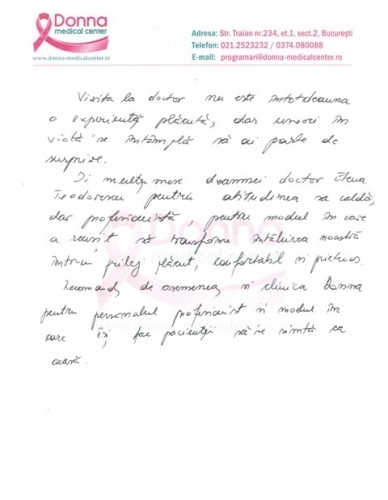 Donna
medical center
www.donna-medicalcenter.ro
Adresa: Str. Traian nr.234, et.1, sect.2, București
Telefon: 021.2523232 / 0374.080088
E-mail: programari@donna-medicalcenter.ro
Vizita la doctor nu este întotdeauna
o experiență plăcută, dar uneori în
viață se întâmplă să ai parte de
surprize.
Îi mulțumesc doamnei doctor Elena
Teodorescu pentru atitudinea sa caldă,
dar profesionistă, pentru modul în care
a reușit să transforme întâlnirea noastră
într-un prilej plăcut, confortabil și prietenos.
Recomand, de asemenea, și clinica Donna
pentru personalul profesionist și modul în
care își fac pacienții să se simtă ca
acasă.
Donna
medical center